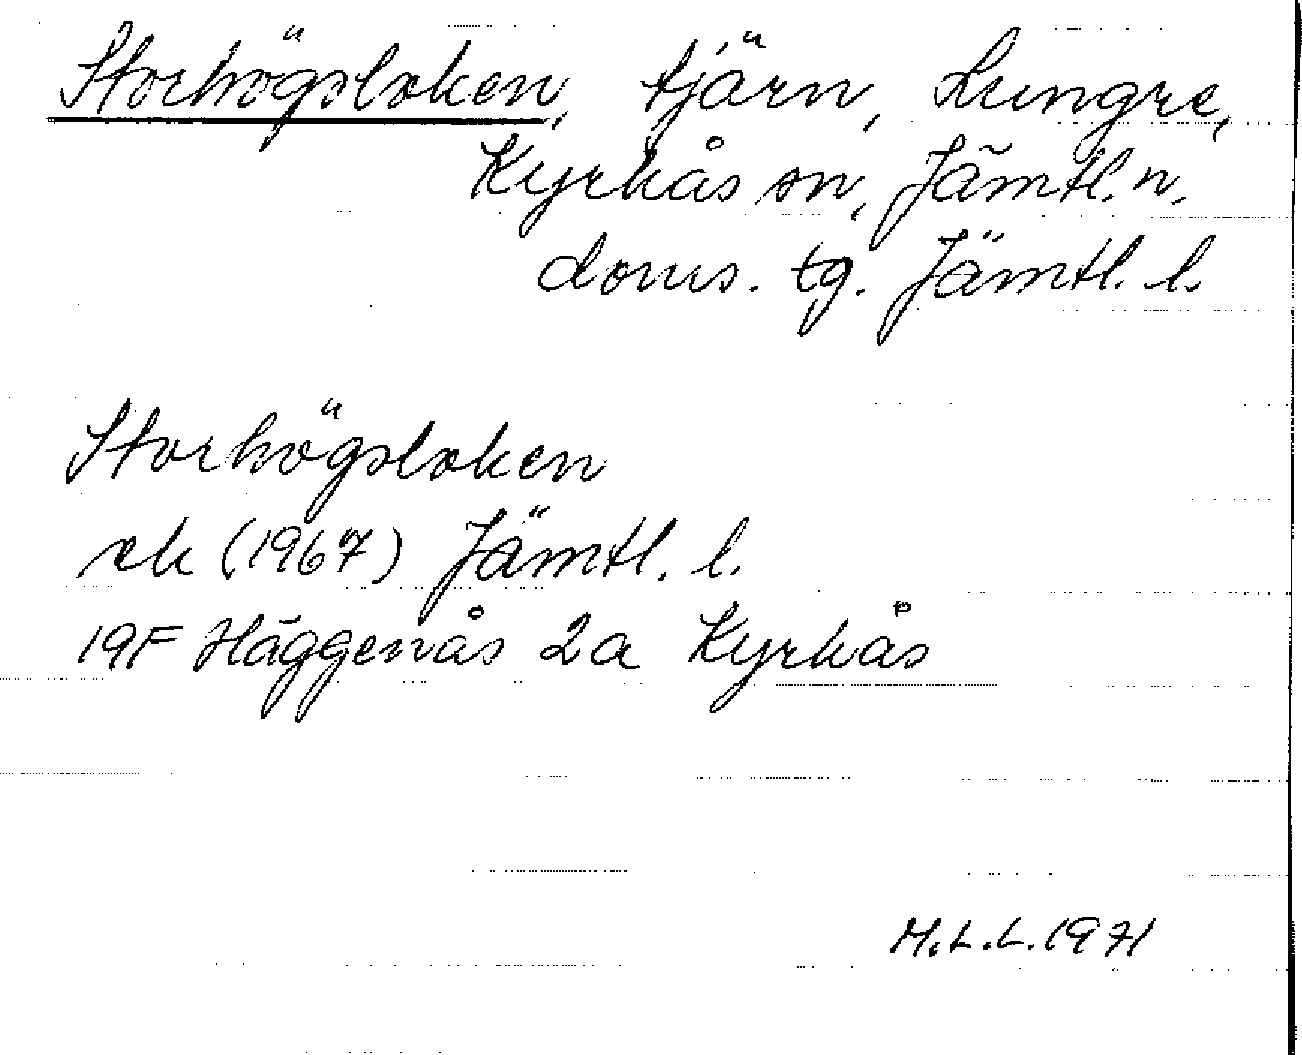 Storhögsloken, tjärn, Lungre,
Kyrkås sn, Jämtl. n.
doms. tg. Jämtl. l.
Storhögsloken
ek (1967) Jämtl. l.
19F Häggenås 2a Kyrkås
M.L.L. 1971